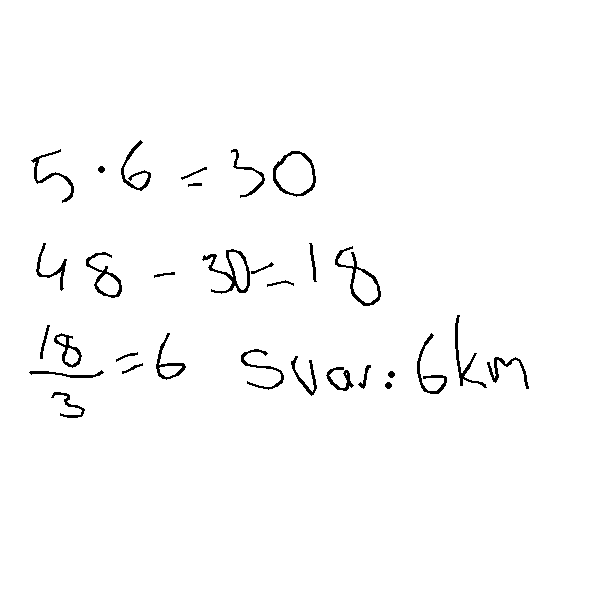 5 · 6 = 30
48 - 30 = 18
18/3 = 6 Svar: 6km